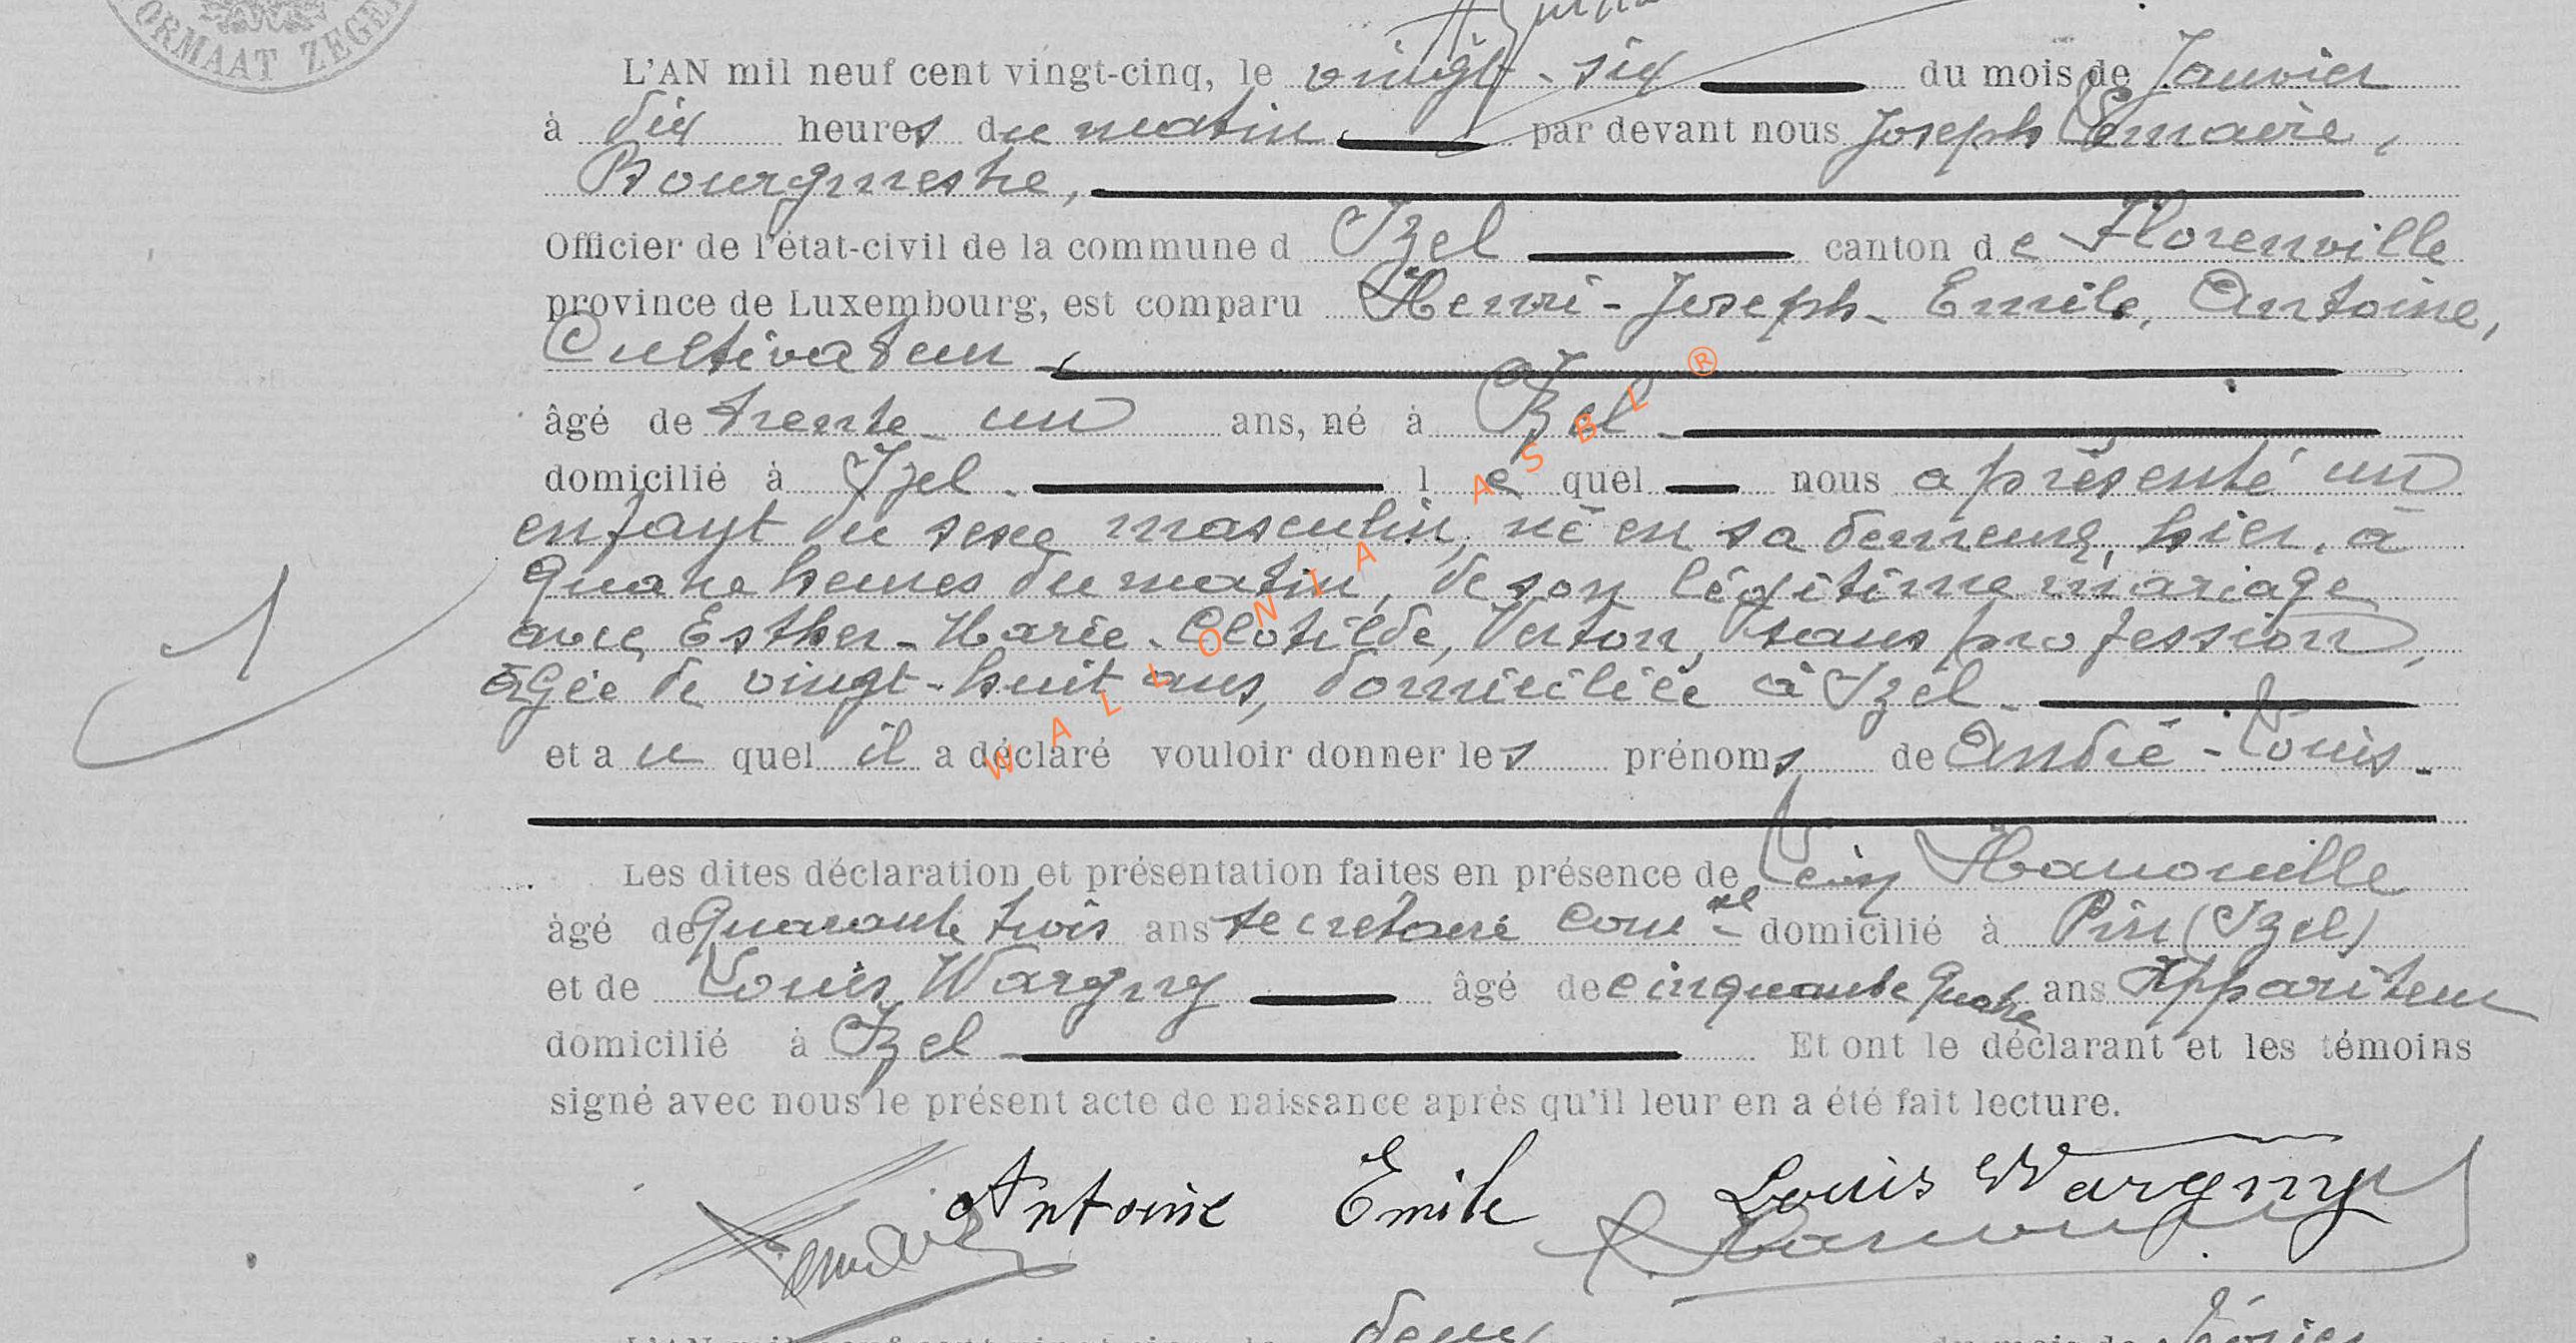 ORMAAT ZEGE
L'AN mil neuf cent vingt-cinq, le vingt-six du mois de Janvier
à dix heures du matin, par devant nous Joseph Lemaire,
Bourgmestre,
Officier de l'état-civil de la commune d Izel canton de Florenville
province de Luxembourg, est comparu Henri-Joseph-Emile, Antoine,
Cultivateur,
âgé de trente-un ans, né à Izel
domicilié à Izel lequel nous a présenté un
enfant du sexe masculin, né en sa demeure, hier, à
quatre heures du matin, de son légitime mariage
avec Esther-Marie-Clotilde, Verton, sans profession,
âgée de vingt-huit ans, domiciliée à Izel
et au quel il a déclaré vouloir donner les prénoms de André-Louis
Les dites déclaration et présentation faites en présence de Hanouille
âgé de quarante trois ans secrétaire comnal domicilié à Pin (Izel)
et de Louis Wargny âgé de cinquante quatre ans Appariteur
domicilié à Izel Et ont le déclarant et les témoins
signé avec nous le présent acte de naissance après qu'il leur en a été fait lecture.
Antoine Emile Louis Wargny
Lemaire
deux
WALLONIA ASBL ®